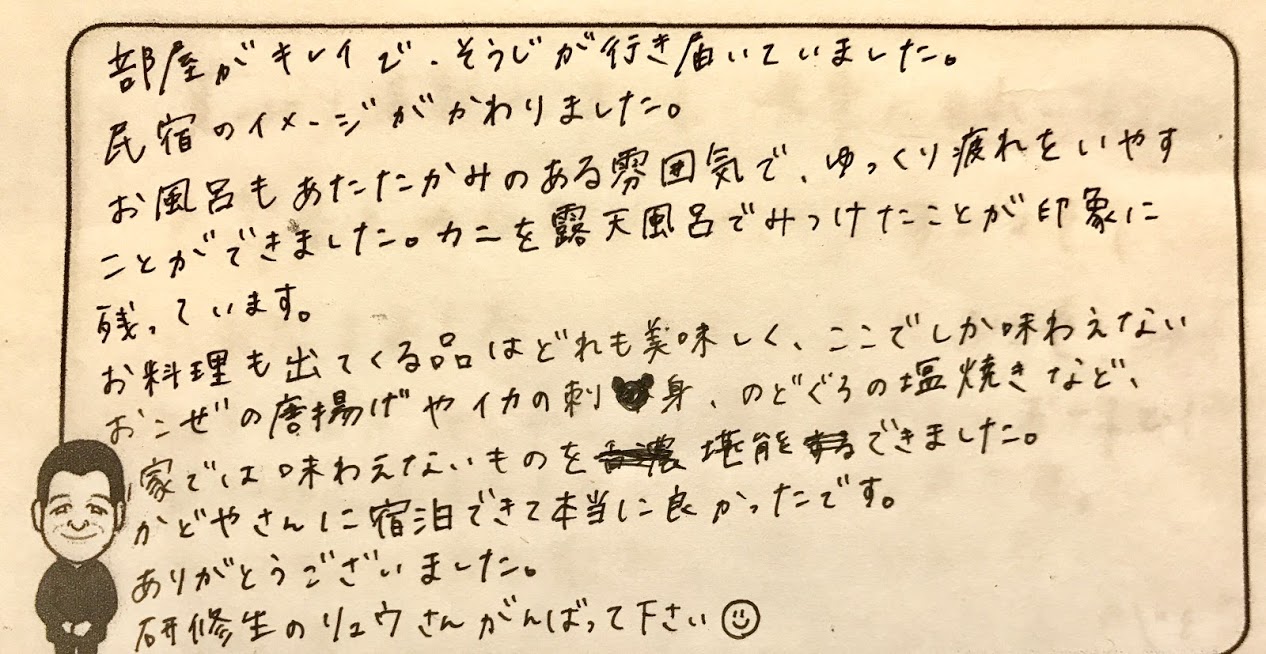 部屋がキレイで、そうじが行き届いていました。
民宿のイメージがかわりました。
お風呂もあたたかみのある雰囲気で、ゆっくり疲れをいやす
ことができました。カニを露天風呂でみつけたことが印象に
残っています。
お料理も出てくる品はどれも美味しく、ここでしか味わえない
おこぜの唐揚げやイカの刺身、のどぐろの塩焼きなど、
家では味わえないものを堪能できました。
かどやさんに宿泊できて本当に良かったです。
ありがとうございました。
研修生のリュウさんがんばって下さい